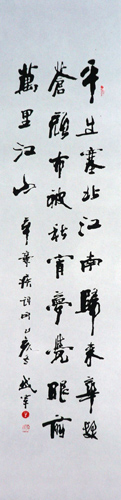 平生塞北江南歸來華髮
蒼顏布被秋宵夢覺眼前
萬里江山
辛棄疾詞